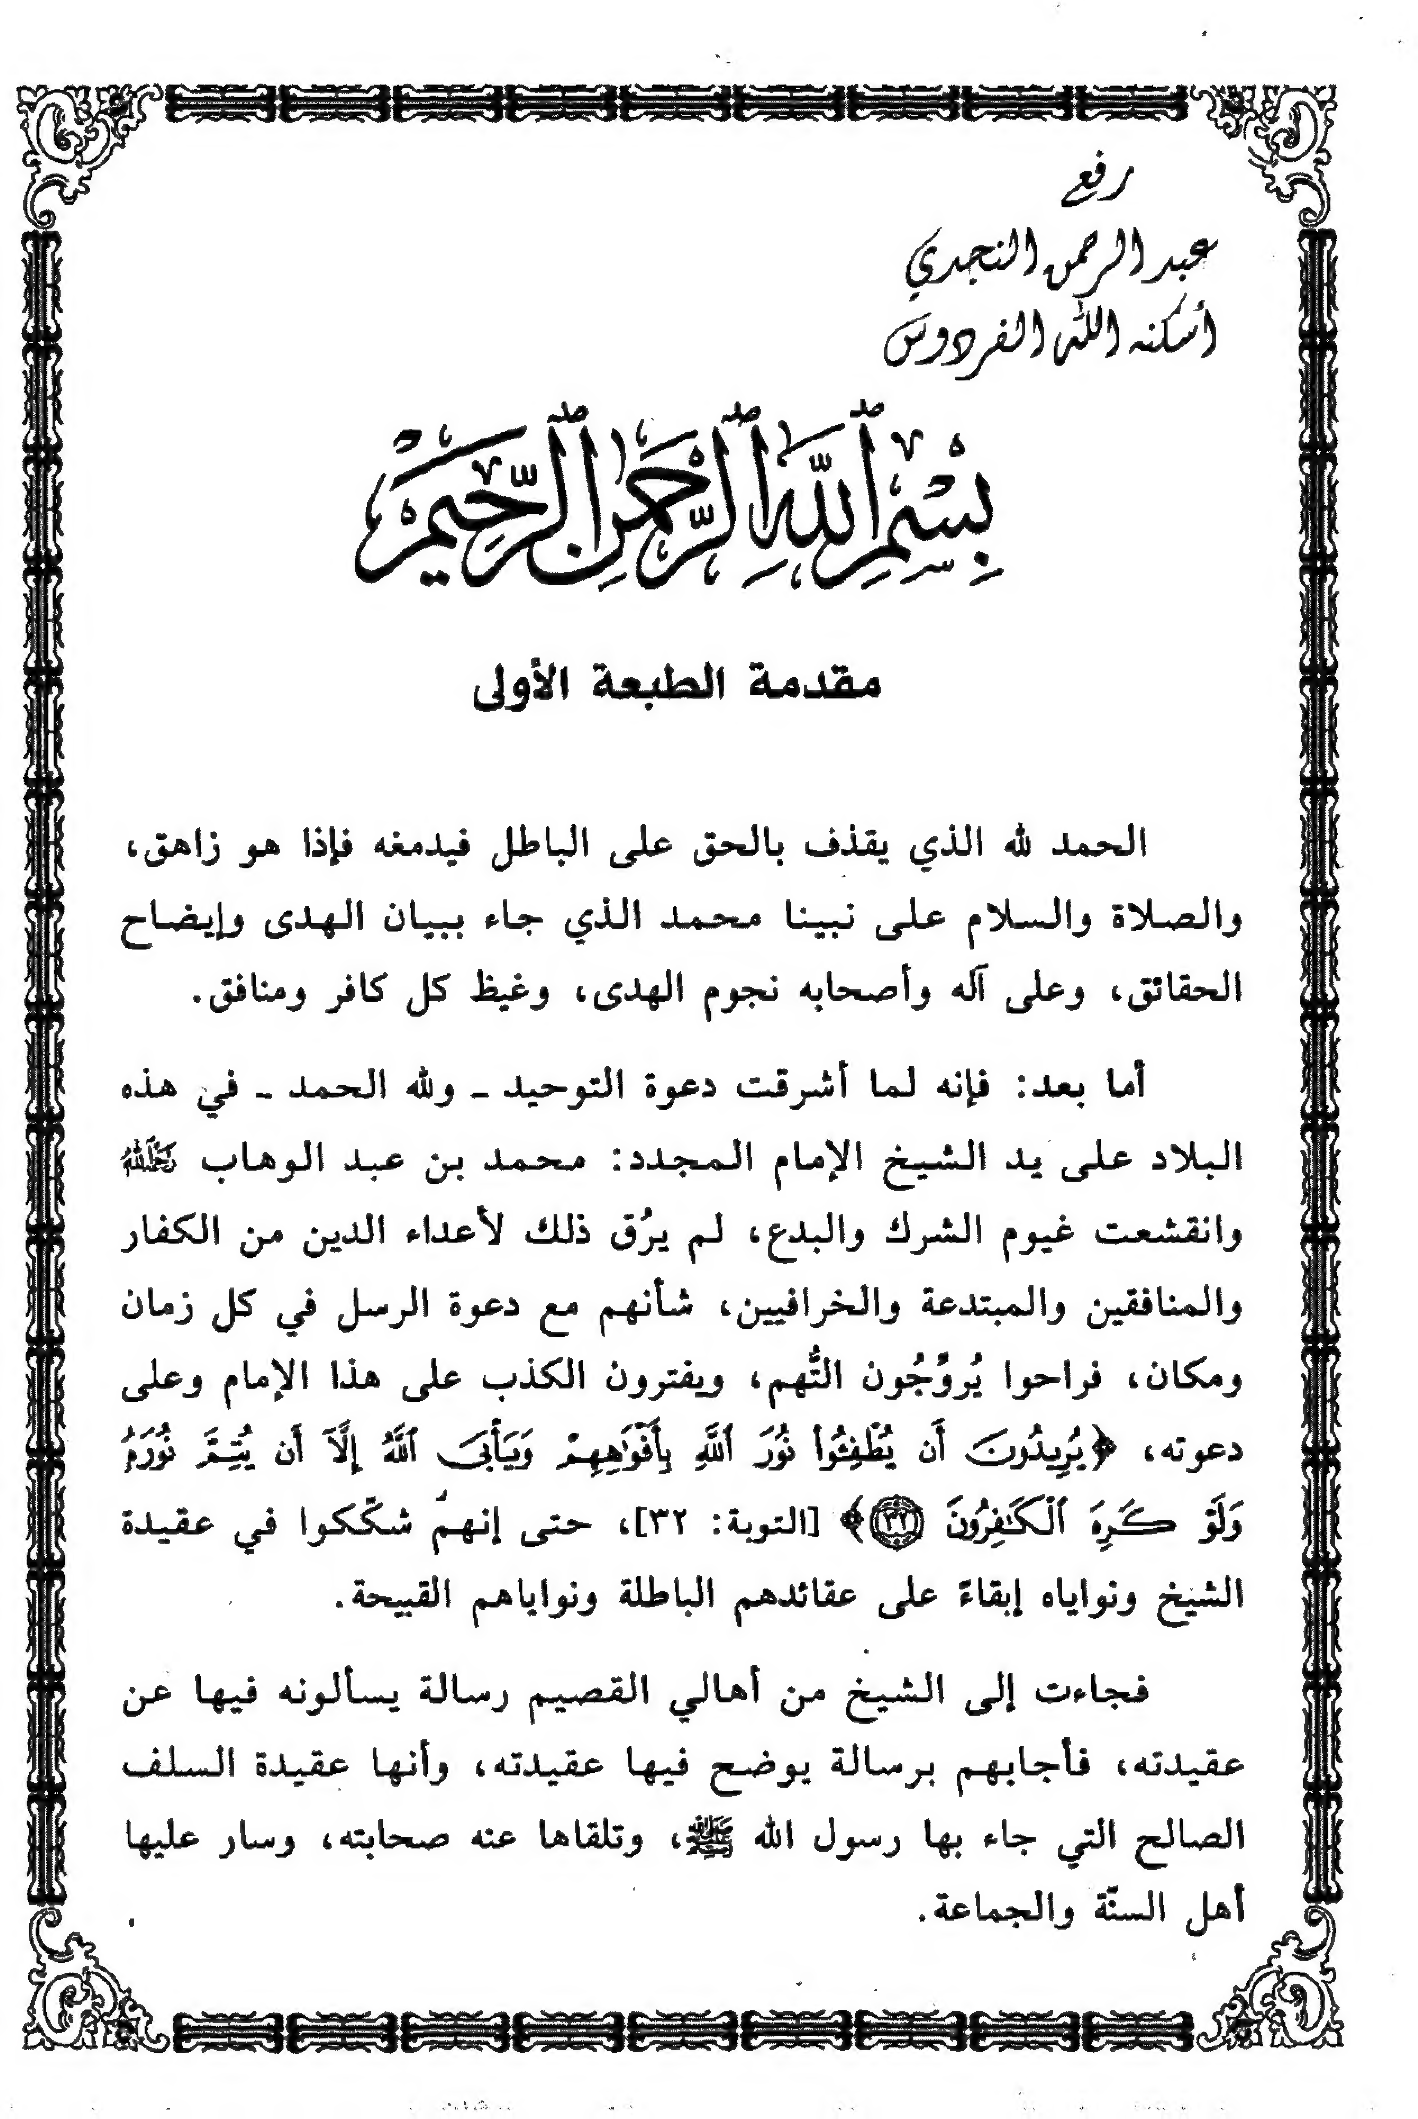 رفع
عبد الرحمن النجدي
أسكنه الله الفردوس
بِسْمِ ٱللَّهِ ٱلرَّحْمَٰنِ ٱلرَّحِيمِ
مقدمة الطبعة الأولى
الحمد لله الذي يقذف بالحق على الباطل فيدمغه فإذا هو زاهق،
والصلاة والسلام على نبينا محمد الذي جاء ببيان الهدى وإيضاح
الحقائق، وعلى آله وأصحابه نجوم الهدى، وغيظ كل كافر ومنافق.
أما بعد: فإنه لما أشرقت دعوة التوحيد ـ ولله الحمد ـ في هذه
البلاد على يد الشيخ الإمام المجدد: محمد بن عبد الوهاب رَحِمَهُ اللَّهُ
وانقشعت غيوم الشرك والبدع، لم يرُق ذلك لأعداء الدين من الكفار
والمنافقين والمبتدعة والخرافيين، شأنهم مع دعوة الرسل في كل زمان
ومكان، فراحوا يُروِّجُون التُّهم، ويفترون الكذب على هذا الإمام وعلى
دعوته، ﴿يُرِيدُونَ أَن يُطْفِـُٔوا۟ نُورَ ٱللَّهِ بِأَفْوَٰهِهِمْ وَيَأْبَى ٱللَّهُ إِلَّآ أَن يُتِمَّ نُورَهُۥ
وَلَوْ كَرِهَ ٱلْكَٰفِرُونَ ٣٢﴾ [التوبة: ٣٢]، حتى إنهم شكّكوا في عقيدة
الشيخ ونواياه إبقاءً على عقائدهم الباطلة ونواياهم القبيحة.
فجاءت إلى الشيخ من أهالي القصيم رسالة يسألونه فيها عن
عقيدته، فأجابهم برسالة يوضح فيها عقيدته، وأنها عقيدة السلف
الصالح التي جاء بها رسول الله ﷺ، وتلقاها عنه صحابته، وسار عليها
أهل السنّة والجماعة.